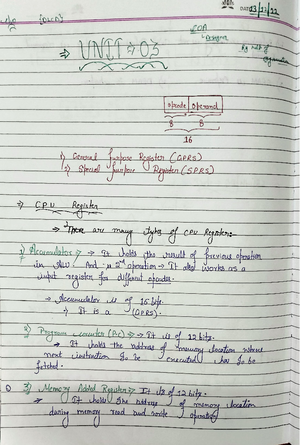 DATE 03/11/22
[DLCD]
COA
↳ Designer
⇒ UNIT ⇒ 03
opcode operand
8 8
16
1) General Purpose Register (GPRS)
2) Special Purpose Register (SPRS)
⇒ CPU Register
→ There are many types of CPU Register:-
1) Accumulator ⇒ → It holds the result of previous operation
in ALU. And 2nd operation → It also works as a
input register for different operands.
→ Accumulator is of 16 bits.
→ It is a (GPRS).
2) Program counter (Pc) ⇒ → It is of 12 bits.
→ It holds the address of memory location where
next instruction to be executed has to be
fetched.
3) Memory Address Register ⇒ It is of 12 bits.
→ It holds the address of memory location
during memory read and write operation